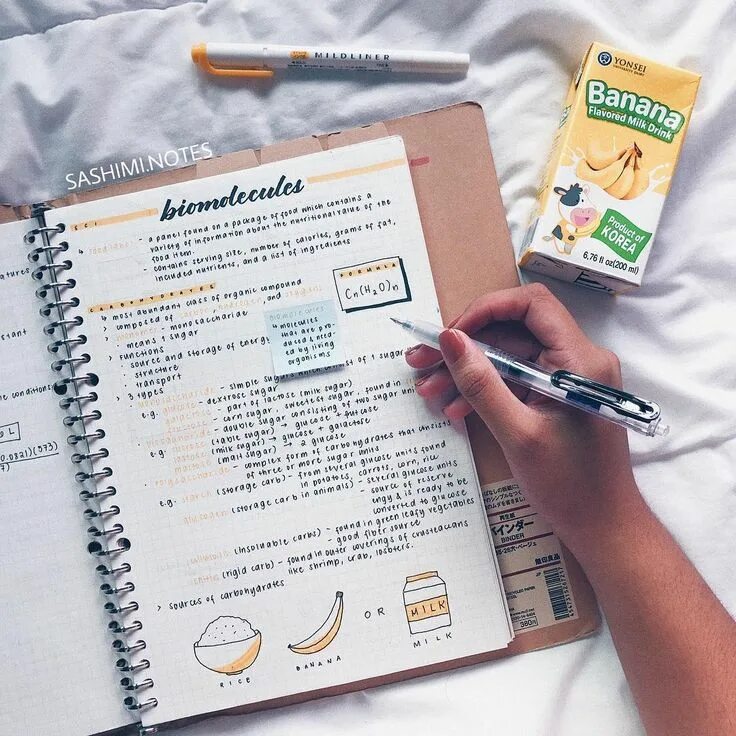 MILDLINER
YONSEI
Banana
Flavored Milk Drink
Product of
KOREA
6,76 fl oz(200 ml)
SASHIMI.NOTES
SCI
biomolecules
food label - a panel found on a package of food which contains a
variety of information about the nutritional value of the
food item.
- contains serving size, number of calories, grams of fat,
included nutrients, and a list of ingredients
FORMULA
Cn(H2O)n
CARBOHYDRATES
most abundant class of organic compound
composed of carbon, hydrogen and oxygen
monomer - monosaccharide
means 1 sugar
functions
source and storage of energy
structure
transport
3 types
biomolecules
molecules
that are pro-
duced & need-
ed by living
organisms
monosaccharide - simple sugars which consist of 1 sugar
e.g. glucose - dextrose sugar
galactose - part of lactose (milk sugar)
fructose - corn sugar, sweetest sugar, found in
disaccharide - double sugar consisting of two sugar
e.g. sucrose (table sugar) → glucose + fructose
lactose (milk sugar) → glucose + galactose
maltose (malt sugar) → 2 glucose
polysaccharide - complex form of carbohydrates that consists
of three or more sugar units
e.g. starch (storage carb) - from several glucose units found
in potatoes, carrots, corn, rice
glycogen (storage carb in animals) - several glucose units
source of reserve
engy & is ready to be
converted to glucose
cellulose (insoluable carbs) - found in green leafy vegetables
good fiber source
chitin (rigid carb) - found in outer coverings of crustaceans
like shrimp, crab, lobsters.
sources of carbohydrates
RICE
BANANA
OR
MILK
MILK
バインダー
BINDER
無印良品
atures
nstant
conditions
0.0821)(573)